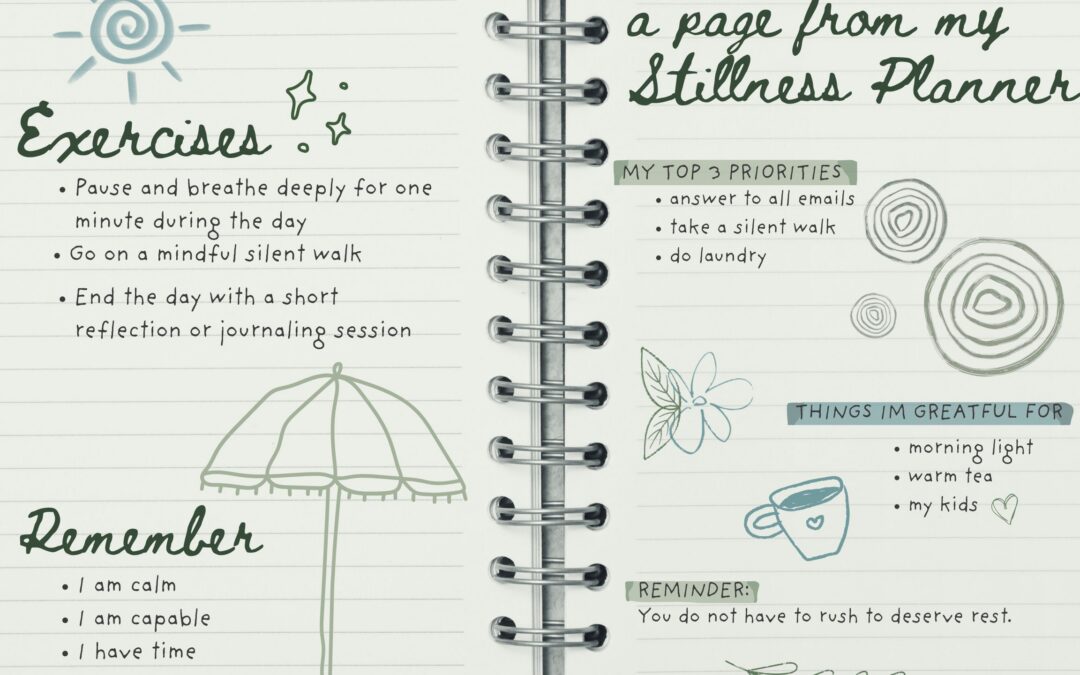 Exercises
• Pause and breathe deeply for one
minute during the day
• Go on a mindful silent walk
• End the day with a short
reflection or journaling session
Remember
• I am calm
• I am capable
• I have time
a page from my
Stillness Planner
MY TOP 3 PRIORITIES
• answer to all emails
• take a silent walk
• do laundry
THINGS IM GREATFUL FOR
• morning light
• warm tea
• my kids
REMINDER:
You do not have to rush to deserve rest.